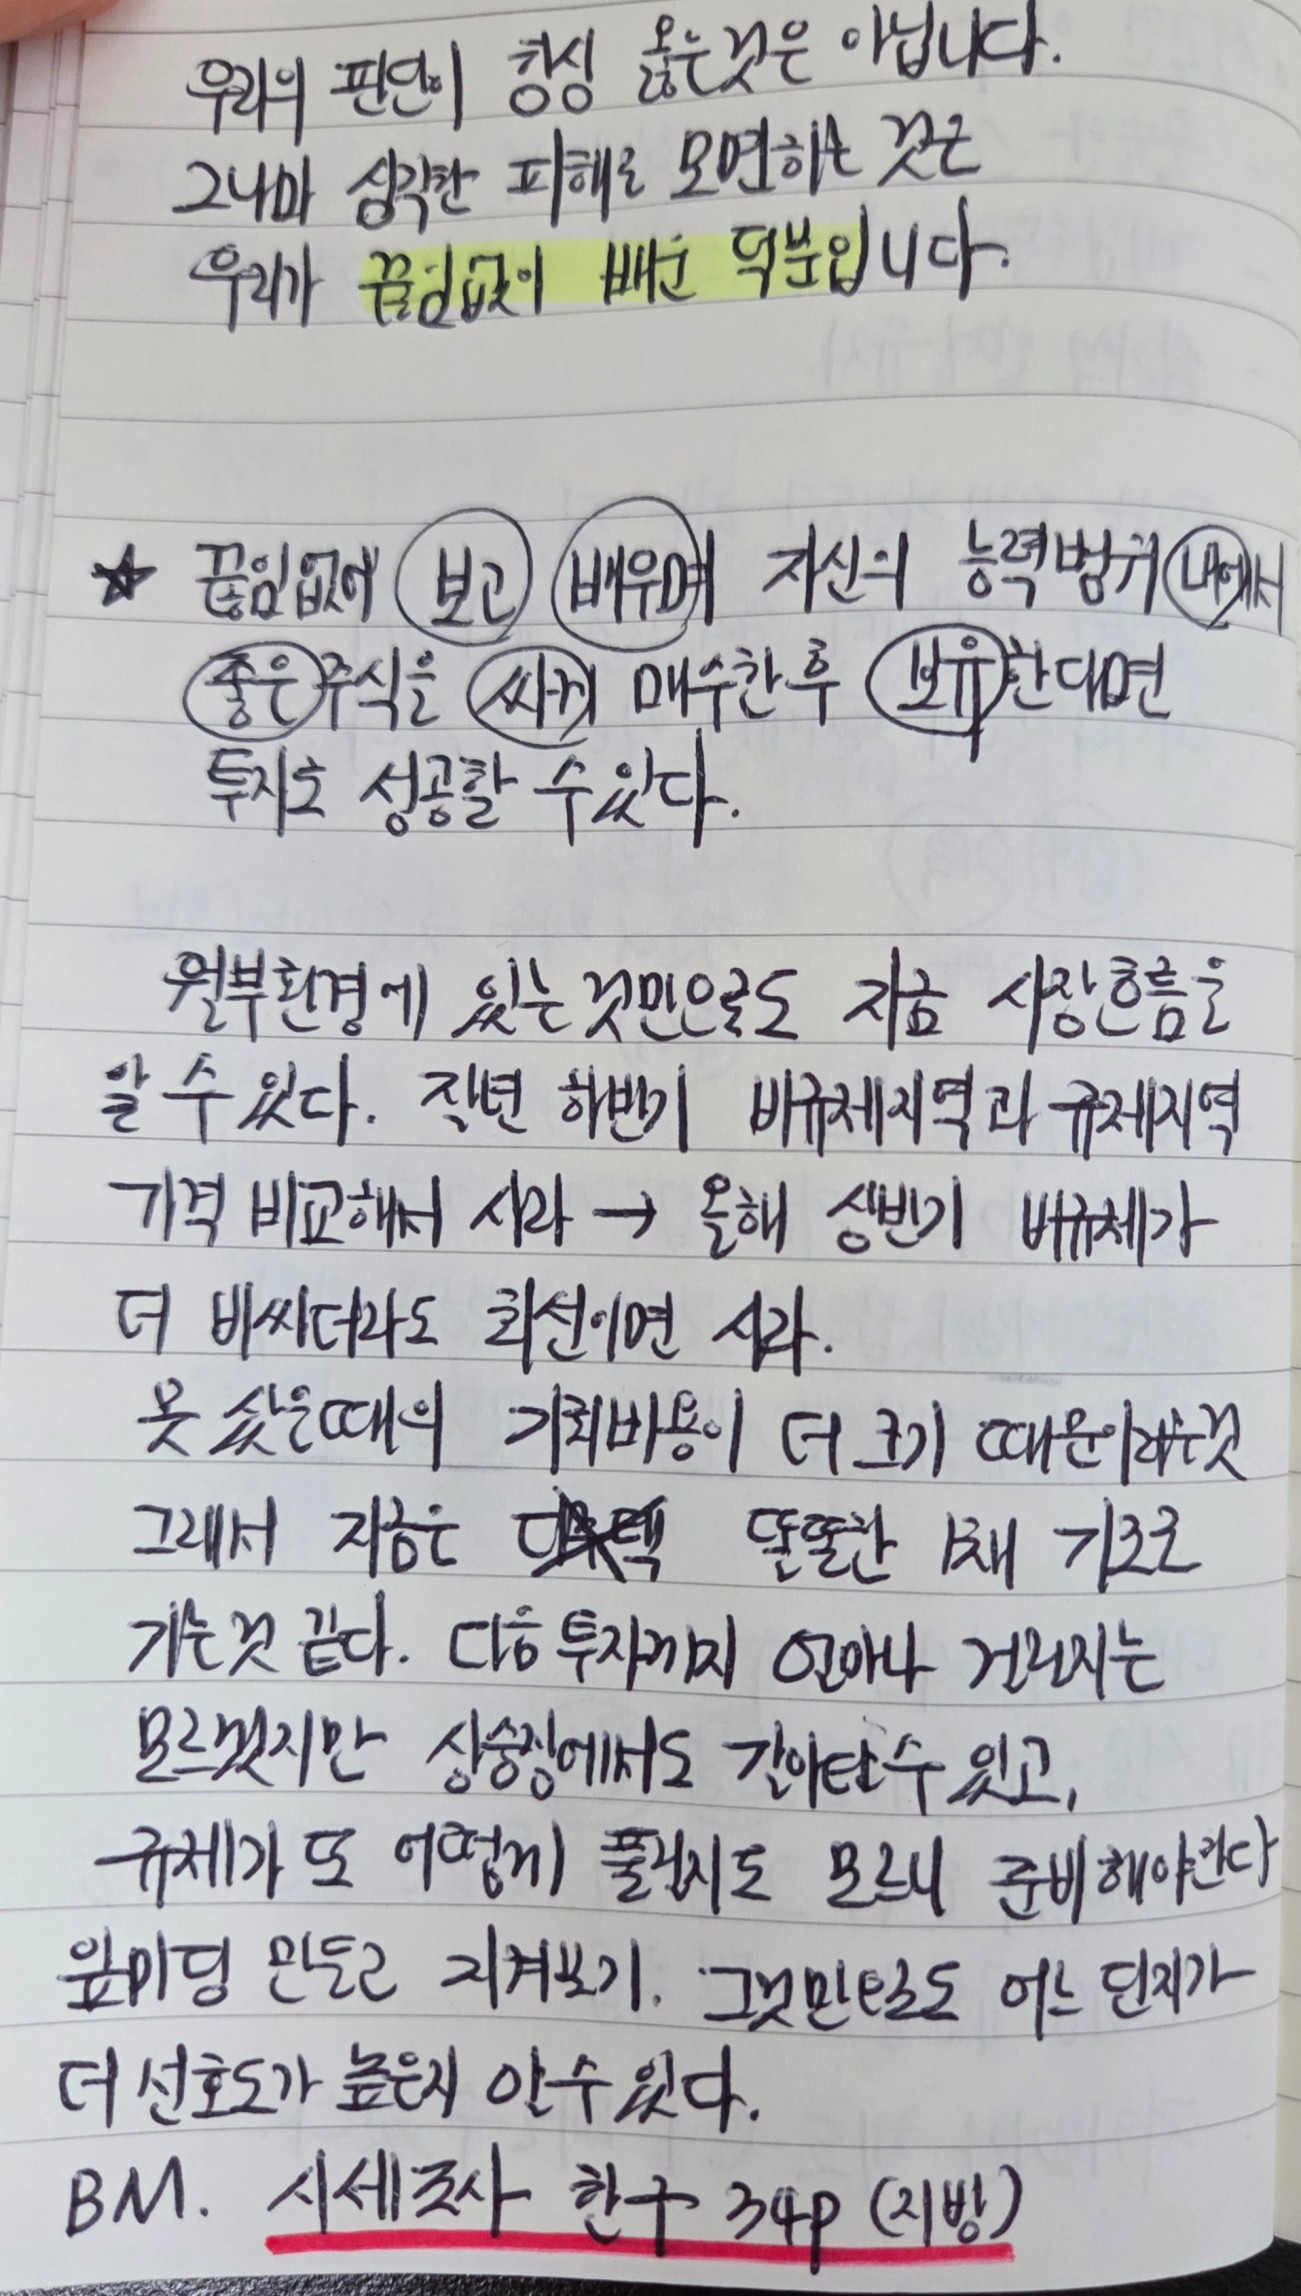 우리의 판단이 항상 옳은것은 아닙니다.
그나마 심각한 피해를 모면하는 것은
우리가 끊임없이 배운 덕분입니다.
☆ 끊임없이 보고 배우며 자신의 능력범위 내에서
좋은 주식을 싸게 매수한 후 보유한다면
투자로 성공할 수 있다.
월부환경에 있는 것만으로도 지금 시장흐름을
알 수 있다. 작년 하반기 비규제지역과 규제지역
가격 비교해서 사라 → 올해 상반기 비규제가
더 비싸더라도 최선이면 사라.
못 샀을때의 기회비용이 더 크기 때문이라는것
그래서 지금은 똘똘한 1채 기조로
가는것 같다. 다음 투자까지 얼마나 걸릴지는
모르겠지만 상승장에서도 갈아탈 수 있고,
규제가 또 어떻게 풀릴지도 모르니 준비해야한다
앞마당 만들고 지켜보기. 그것만으로도 어느 단지가
더 선호도가 높은지 알 수 있다.
BM. 시세조사 한구 34p (지방)